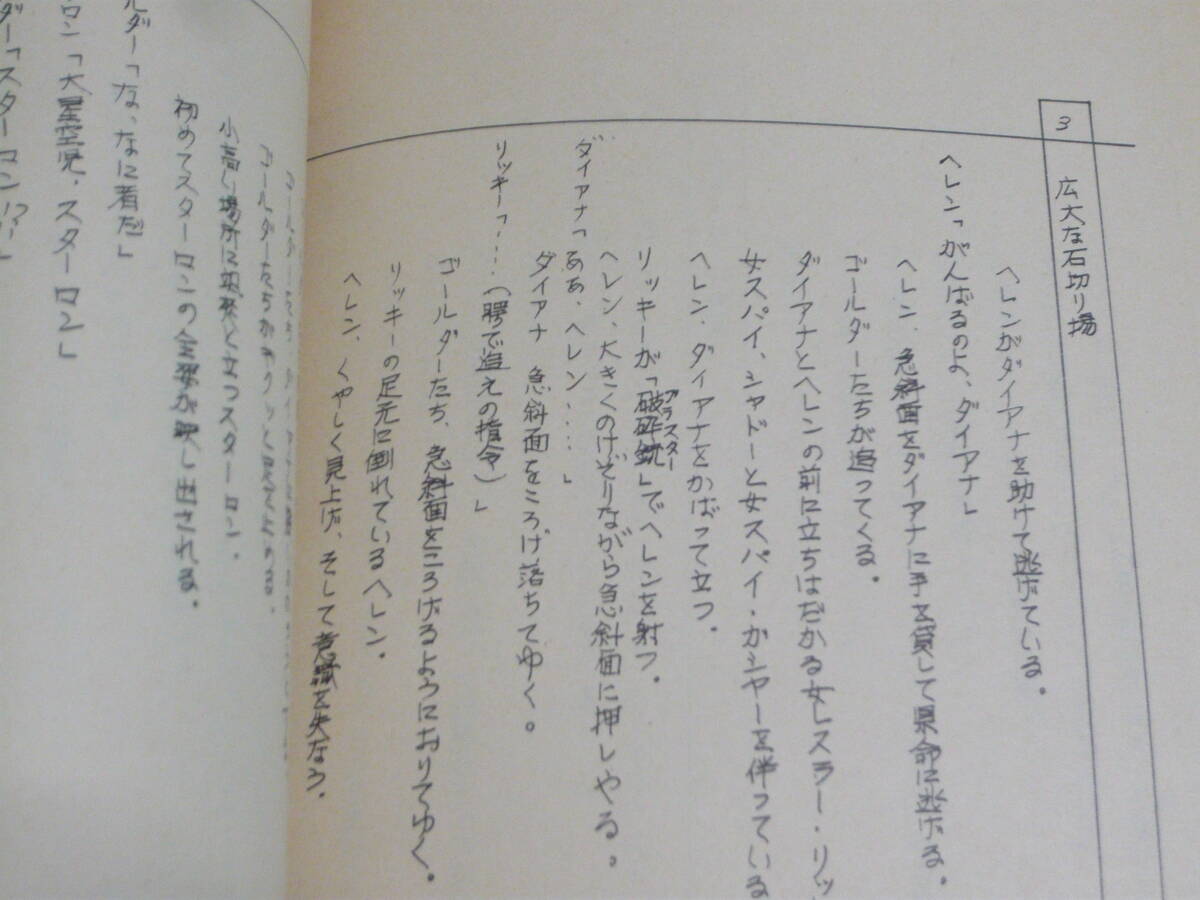 3
広大な石切り場
ヘレンがダイアナを助けて逃げている。
ヘレン「がんばるのよ、ダイアナ」
ヘレン、急斜面をダイアナに手を貸して県命に逃げる。
ゴールダーたちが追ってくる。
ダイアナとヘレンの前に立ちはだかる女レスラー・リッ
女スパイ、シャドーと女スパイ・カシヤーを伴っている
ヘレン、ダイアナをかばって立つ。
リッキーが「破砕銃」でヘレンを射つ。
ブラスター
ヘレン、大きくのけぞりながら急斜面に押しやる。
ダイアナ「ああ、ヘレン……」
ダイアナ 急斜面をころげ落ちてゆく。
リッキー「……(腭で追えの指令)」
ゴールダーたち、急斜面をころげるようにおりてゆく。
リッキーの足元に倒れているヘレン。
ヘレン、くやしく見上げ、そして意識を失なう。
小高い場所に立つスターロン。
初めてスターロンの全姿が映し出される。
ルダー「な、なに者だ」
ロン「大星空児・スターロン」
ダー「スターロン